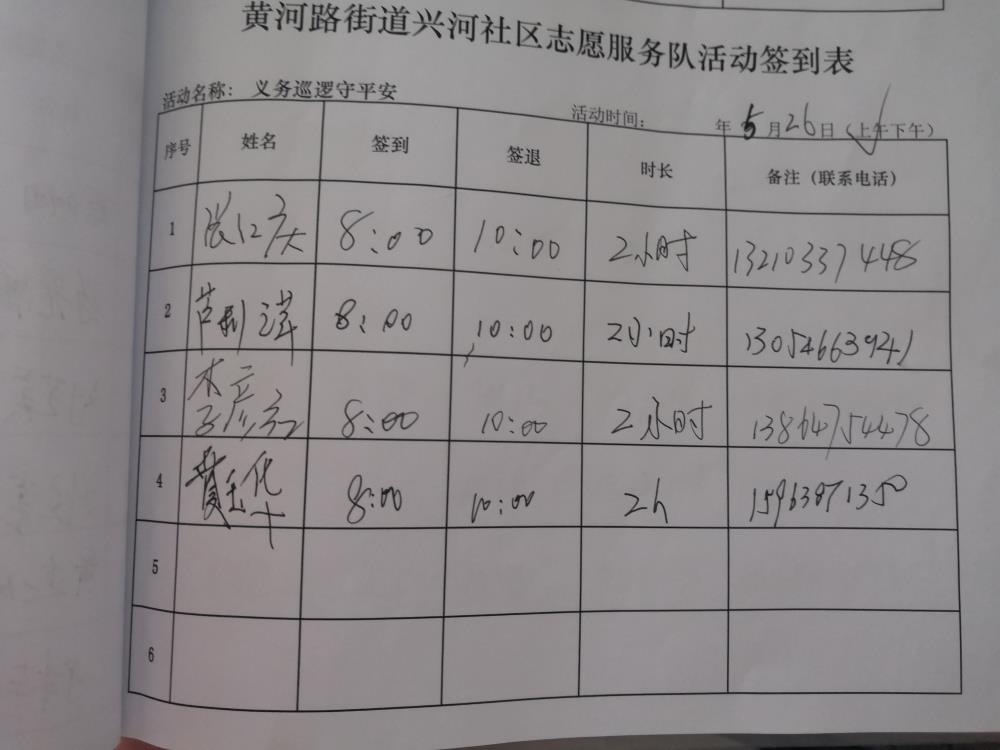 黄河路街道兴河社区志愿服务队活动签到表
活动名称： 义务巡逻守平安
活动时间： 年 5月26日（上午下午）
序号 姓名 签到 签退 时长 备注（联系电话）
1 张红庆 8:00 10:00 2小时 13210337448
2 8:00 10:00 2小时 13054663941
3 8:00 10:00 2小时 13864754478
4 黄玉华 8:00 10:00 2h 15963871350
5
6